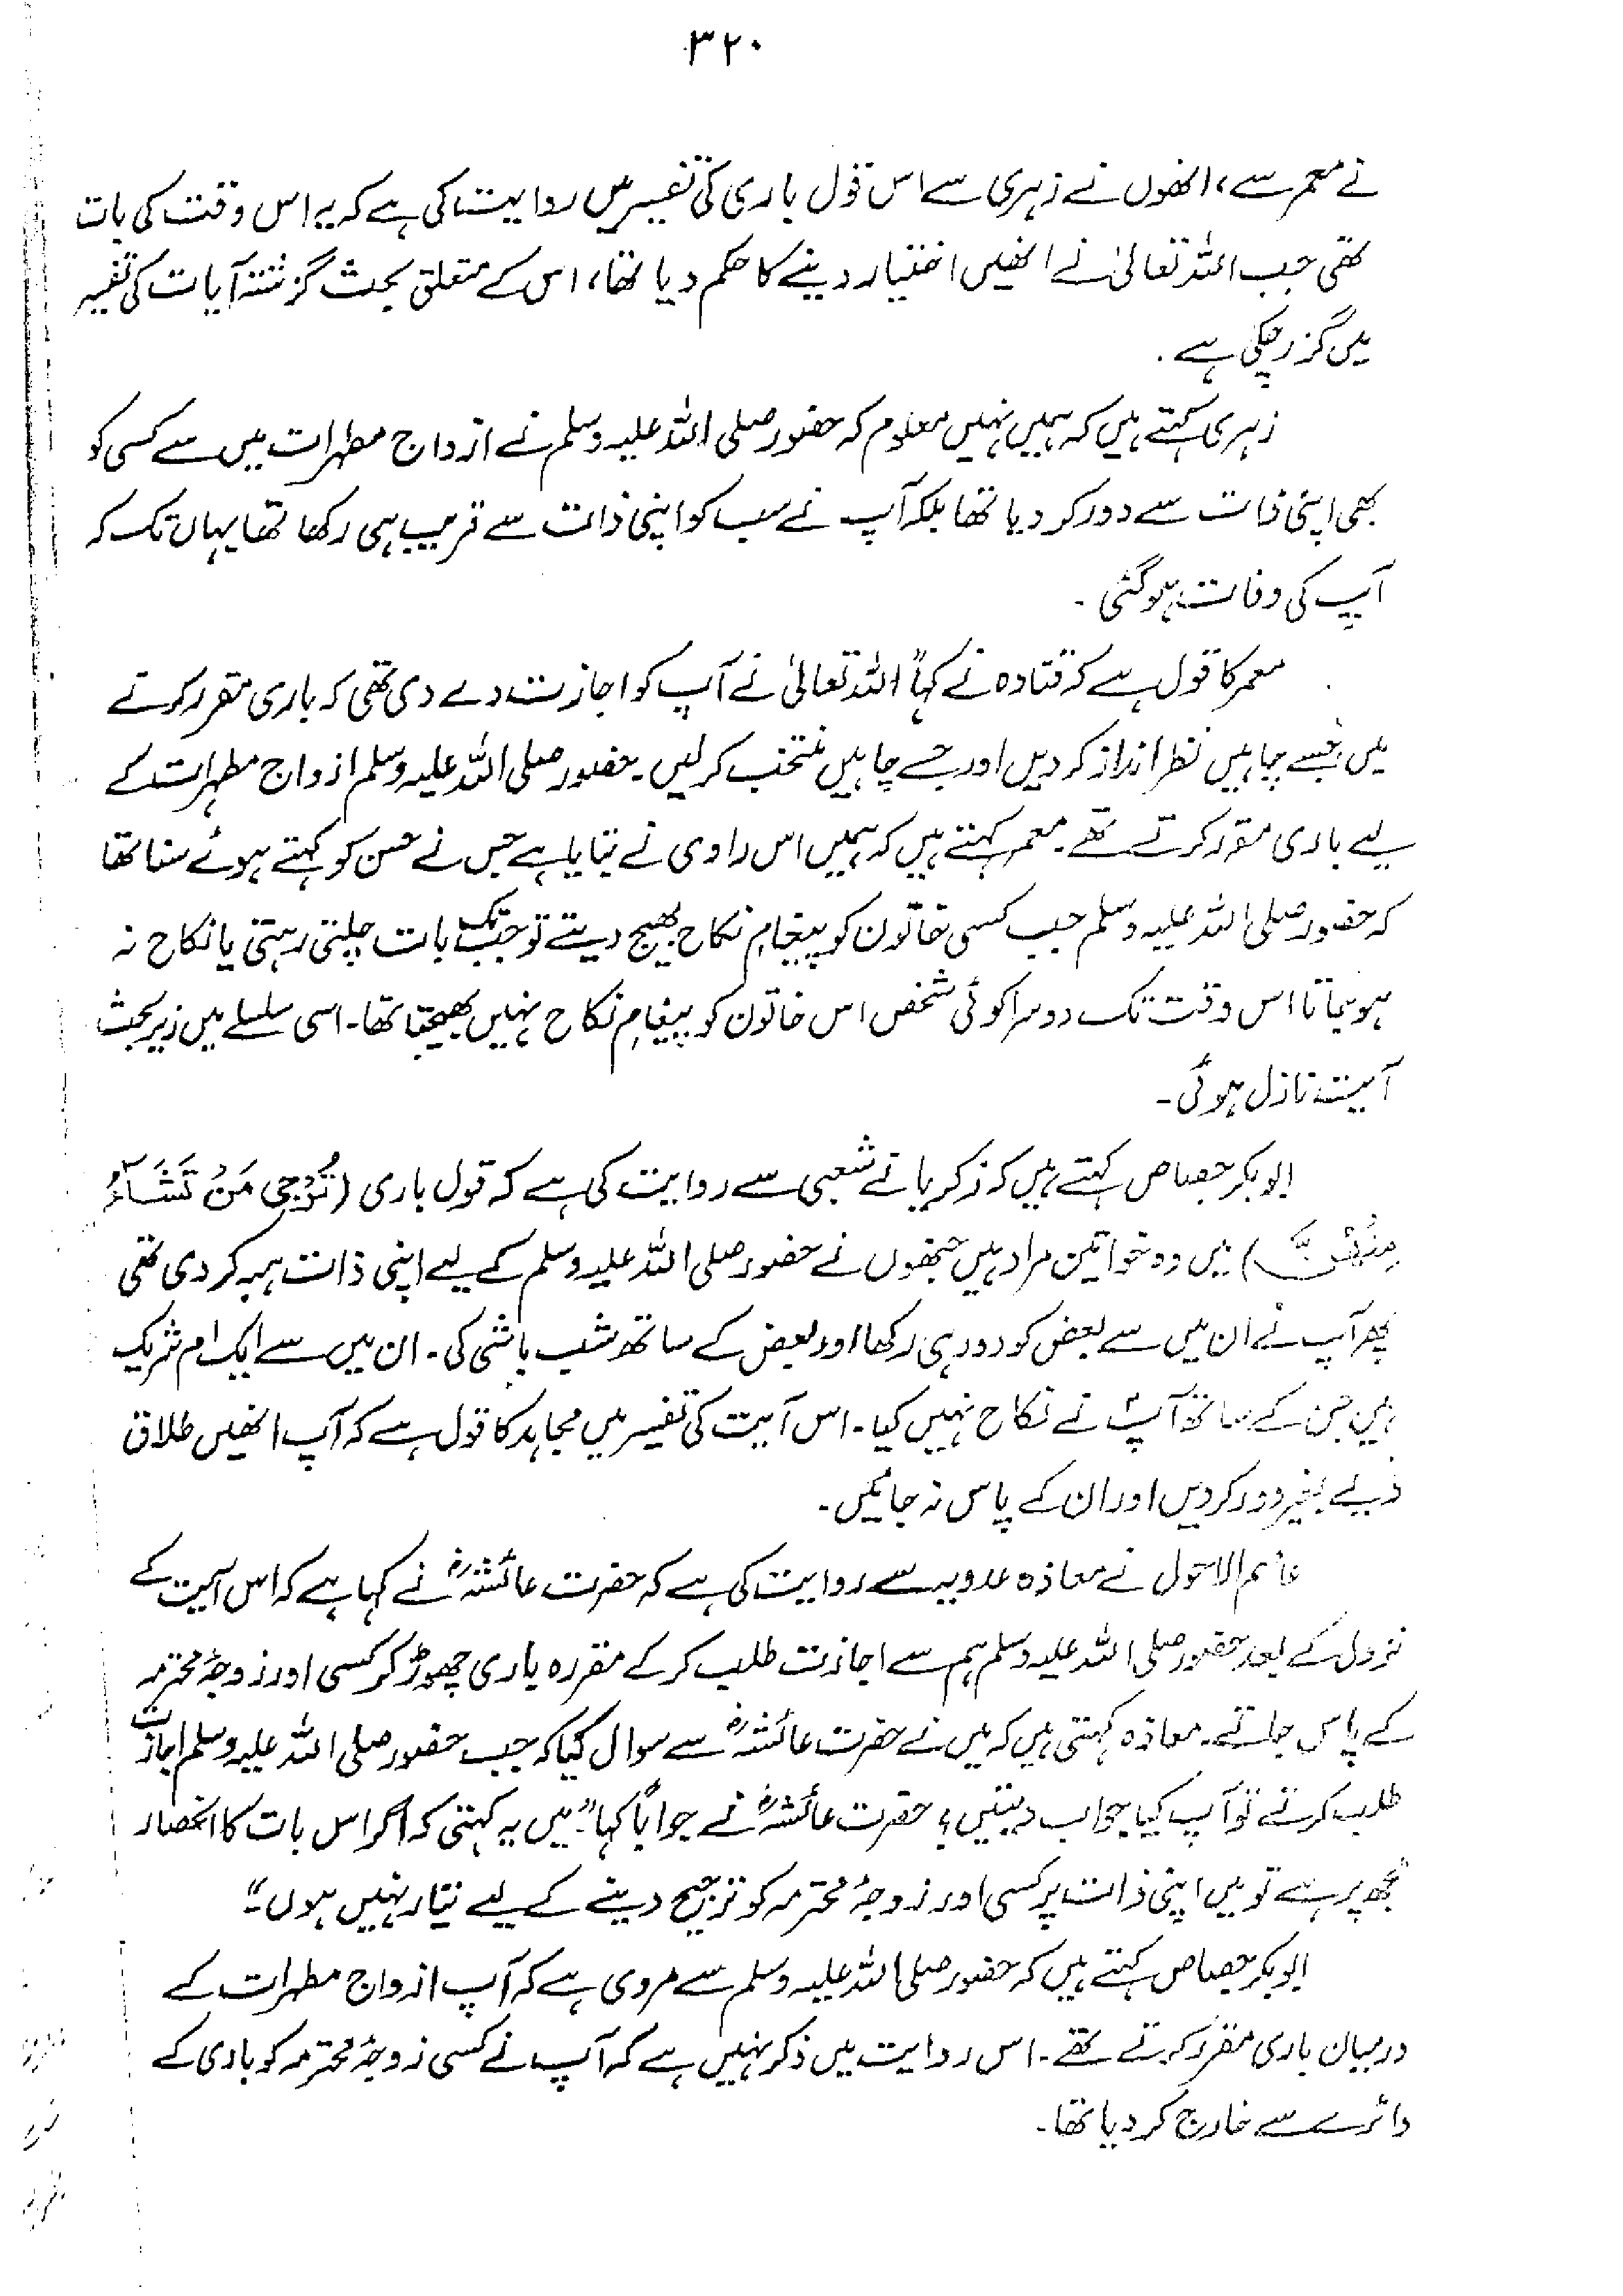 ۳۲۰
نے معمر سے، انھوں نے زہری سے اس قول باری کی تفسیر میں روایت کی ہے کہ یہ اس وقت کی بات
تھی جب اللہ تعالیٰ نے انھیں اختیار دینے کا حکم دیا تھا، اس کے متعلق بحث گزشتہ آیات کی تفسیر
میں گزر چکی ہے۔
زہری کہتے ہیں کہ ہمیں نہیں معلوم کہ حضور صلی اللہ علیہ وسلم نے ازواج مطہرات میں سے کسی کو
بھی اپنی ذات سے دور کر دیا تھا بلکہ آپ نے سب کو اپنی ذات سے قریب ہی رکھا تھا یہاں تک کہ
آپ کی وفات ہو گئی۔
معمر کا قول ہے کہ قتادہ نے کہا "اللہ تعالیٰ نے آپ کو اجازت دے دی تھی کہ باری مقرر کرنے
میں جسے چاہیں نظر انداز کر دیں اور جسے چاہیں منتخب کر لیں۔ حضور صلی اللہ علیہ وسلم ازواج مطہرات کے
لیے باری مقرر کرتے تھے۔ معمر کہتے ہیں کہ ہمیں اس راوی نے بتایا ہے جس نے حسن کو کہتے ہوئے سنا تھا
کہ حضور صلی اللہ علیہ وسلم جب کسی خاتون کو پیغام نکاح بھیج دیتے تو جب تک بات چلتی رہتی یا نکاح نہ
ہو جاتا اس وقت تک دوسرا کوئی شخص اس خاتون کو پیغامِ نکاح نہیں بھیجتا تھا۔ اسی سلسلے میں زیر بحث
آیت نازل ہوئی۔
ابوبکر جصاص کہتے ہیں کہ زکریا نے شعبی سے روایت کی ہے کہ قول باری (تُرْجِی مَنْ تَشَآءُ
مِنْهُنَّ) میں وہ خواتین مراد ہیں جنھوں نے حضور صلی اللہ علیہ وسلم کے لیے اپنی ذات ہبہ کر دی تھی
پھر آپ نے ان میں سے بعض کو دور ہی رکھا اور بعض کے ساتھ شب باشی کی۔ ان میں سے ایک ام شریک
ہیں جن کے ساتھ آپؐ نے نکاح نہیں کیا۔ اس آیت کی تفسیر میں مجاہد کا قول ہے کہ آپ انھیں طلاق
دیے بغیر دور کر دیں اور ان کے پاس نہ جائیں۔
عاصم الاحول نے معاذہ عدویہ سے روایت کی ہے کہ حضرت عائشہؓ نے کہا ہے کہ اس آیت کے
نزول کے بعد حضور صلی اللہ علیہ وسلم ہم سے اجازت طلب کر کے مقررہ باری چھوڑ کر کسی اور زوجۂ محترمہ
کے پاس جاتے۔ معاذہ کہتی ہیں کہ میں نے حضرت عائشہؓ سے سوال کیا کہ جب حضور صلی اللہ علیہ وسلم اجازت
طلب کرتے تو آپ کیا جواب دیتیں؟ حضرت عائشہؓ نے جواباً کہا: "میں یہ کہتی کہ اگر اس بات کا انحصار
مجھ پر ہے تو میں اپنی ذات پر کسی اور زوجۂ محترمہ کو ترجیح دینے کے لیے تیار نہیں ہوں۔"
ابوبکر جصاص کہتے ہیں کہ حضور صلی اللہ علیہ وسلم سے مروی ہے کہ آپ ازواج مطہرات کے
درمیان باری مقرر کرتے تھے۔ اس روایت میں ذکر نہیں ہے کہ آپ نے کسی زوجۂ محترمہ کو باری کے
دائرے سے خارج کر دیا تھا۔